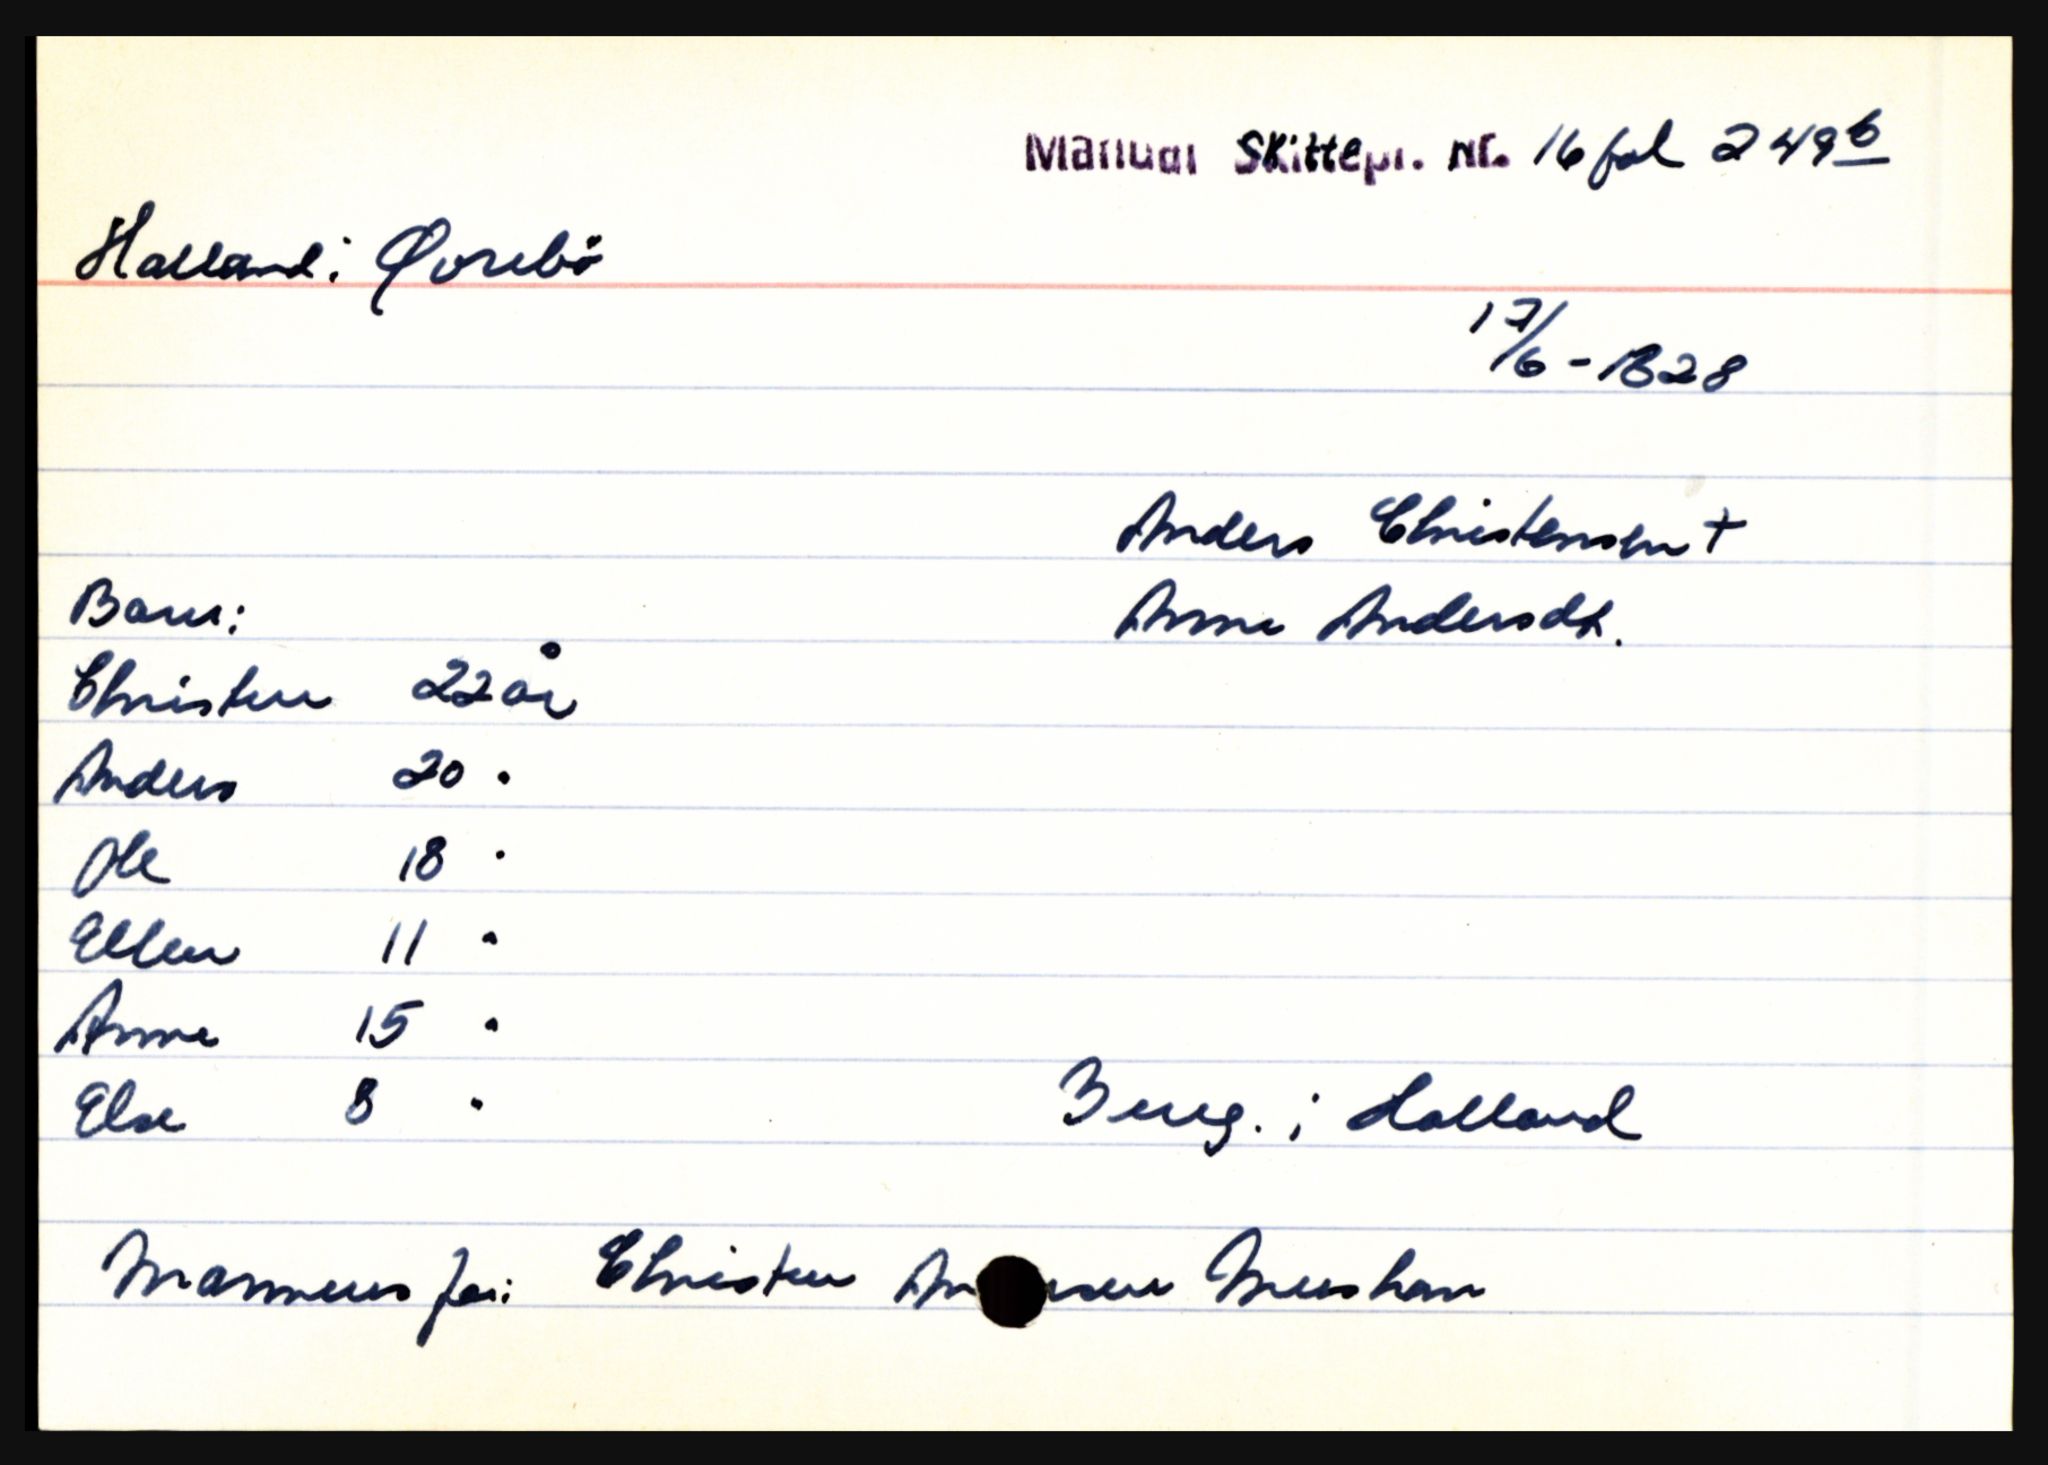 Manual Skiftepr. Nr. 16 fol 249b
Halland i Øvrebö
17/6 - 1828
Anders Christensen +
Barn:
Anne Andersdt.
Christen 22 år
Anders 20 "
Ole 18 "
Ellen 11 "
Anne 15 "
Else 8 "
i Halland
Mannens far: Christen Andersen